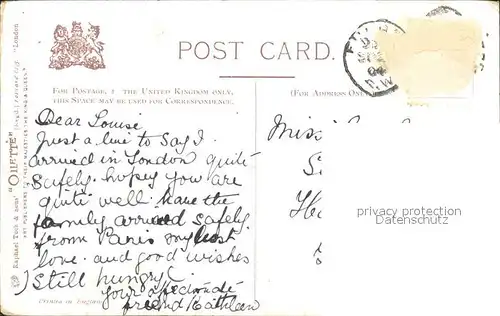 POST CARD.
FOR POSTAGE, THE UNITED KINGDOM ONLY,
THIS SPACE MAY BE USED FOR CORRESPONDENCE.
(FOR ADDRESS ONLY
Dear Louise
Just a line to say I
arrived in London quite
safely. hopeing you are
quite well. have the
family arrived safely
from Paris my best
love. and good wishes
Still hungry
your affectionate
friend Kathleen
Miss
privacy protection
watermark
Raphael Tuck & Sons' "OILETTE"
Printed in England